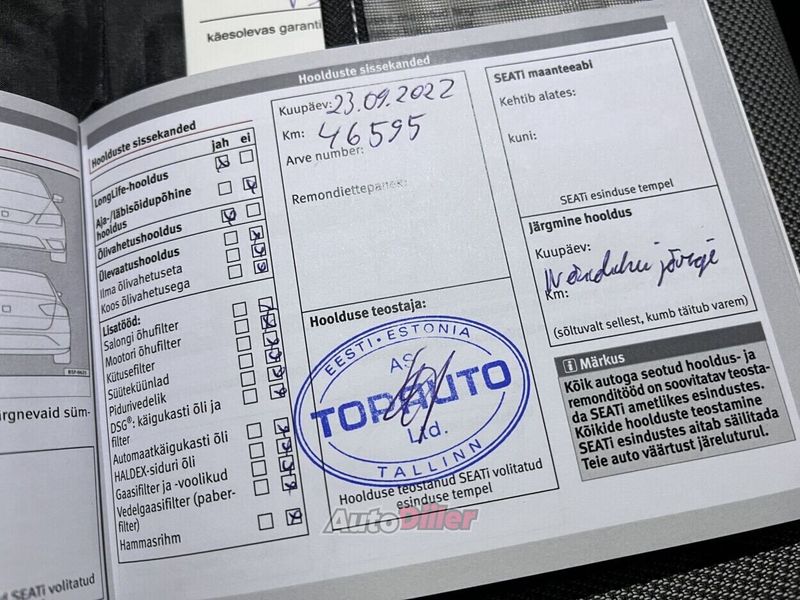 käesolevas garanti
Hoolduste sissekanded
Hoolduste sissekanded
jah ei
LongLife-hooldus
Aja-/läbisõidupõhine
hooldus
Õlivahetushooldus
Ülevaatushooldus
Ilma õlivahetuseta
Koos õlivahetusega
Lisatööd:
Salongi õhufilter
Mootori õhufilter
Kütusefilter
Süüteküünlad
Pidurivedelik
DSG®: käigukasti õli ja
filter
Automaatkäigukasti õli
HALDEX-siduri õli
Gaasifilter ja -voolikud
Vedelgaasifilter (paber-
filter)
Hammasrihm
Kuupäev: 23.09.2022
Km: 46595
Arve number:
Remondiettepanek:
Hoolduse teostaja:
EESTI • ESTONIA
AS
TOPAUTO
Ltd.
TALLINN
Hoolduse teostanud SEATi volitatud
esinduse tempel
SEATi maanteeabi
Kehtib alates:
kuni:
SEATi esinduse tempel
Järgmine hooldus
Kuupäev:
Näidiku järgi
Km:
(sõltuvalt sellest, kumb täitub varem)
i Märkus
Kõik autoga seotud hooldus- ja
remonditööd on soovitatav teosta-
da SEATi ametlikes esindustes.
Kõikide hoolduste teostamine
SEATi esindustes aitab säilitada
Teie auto väärtust järeluturul.
B5P-0621
irgnevaid süm-
id SEATi volitatud
AutoDiller